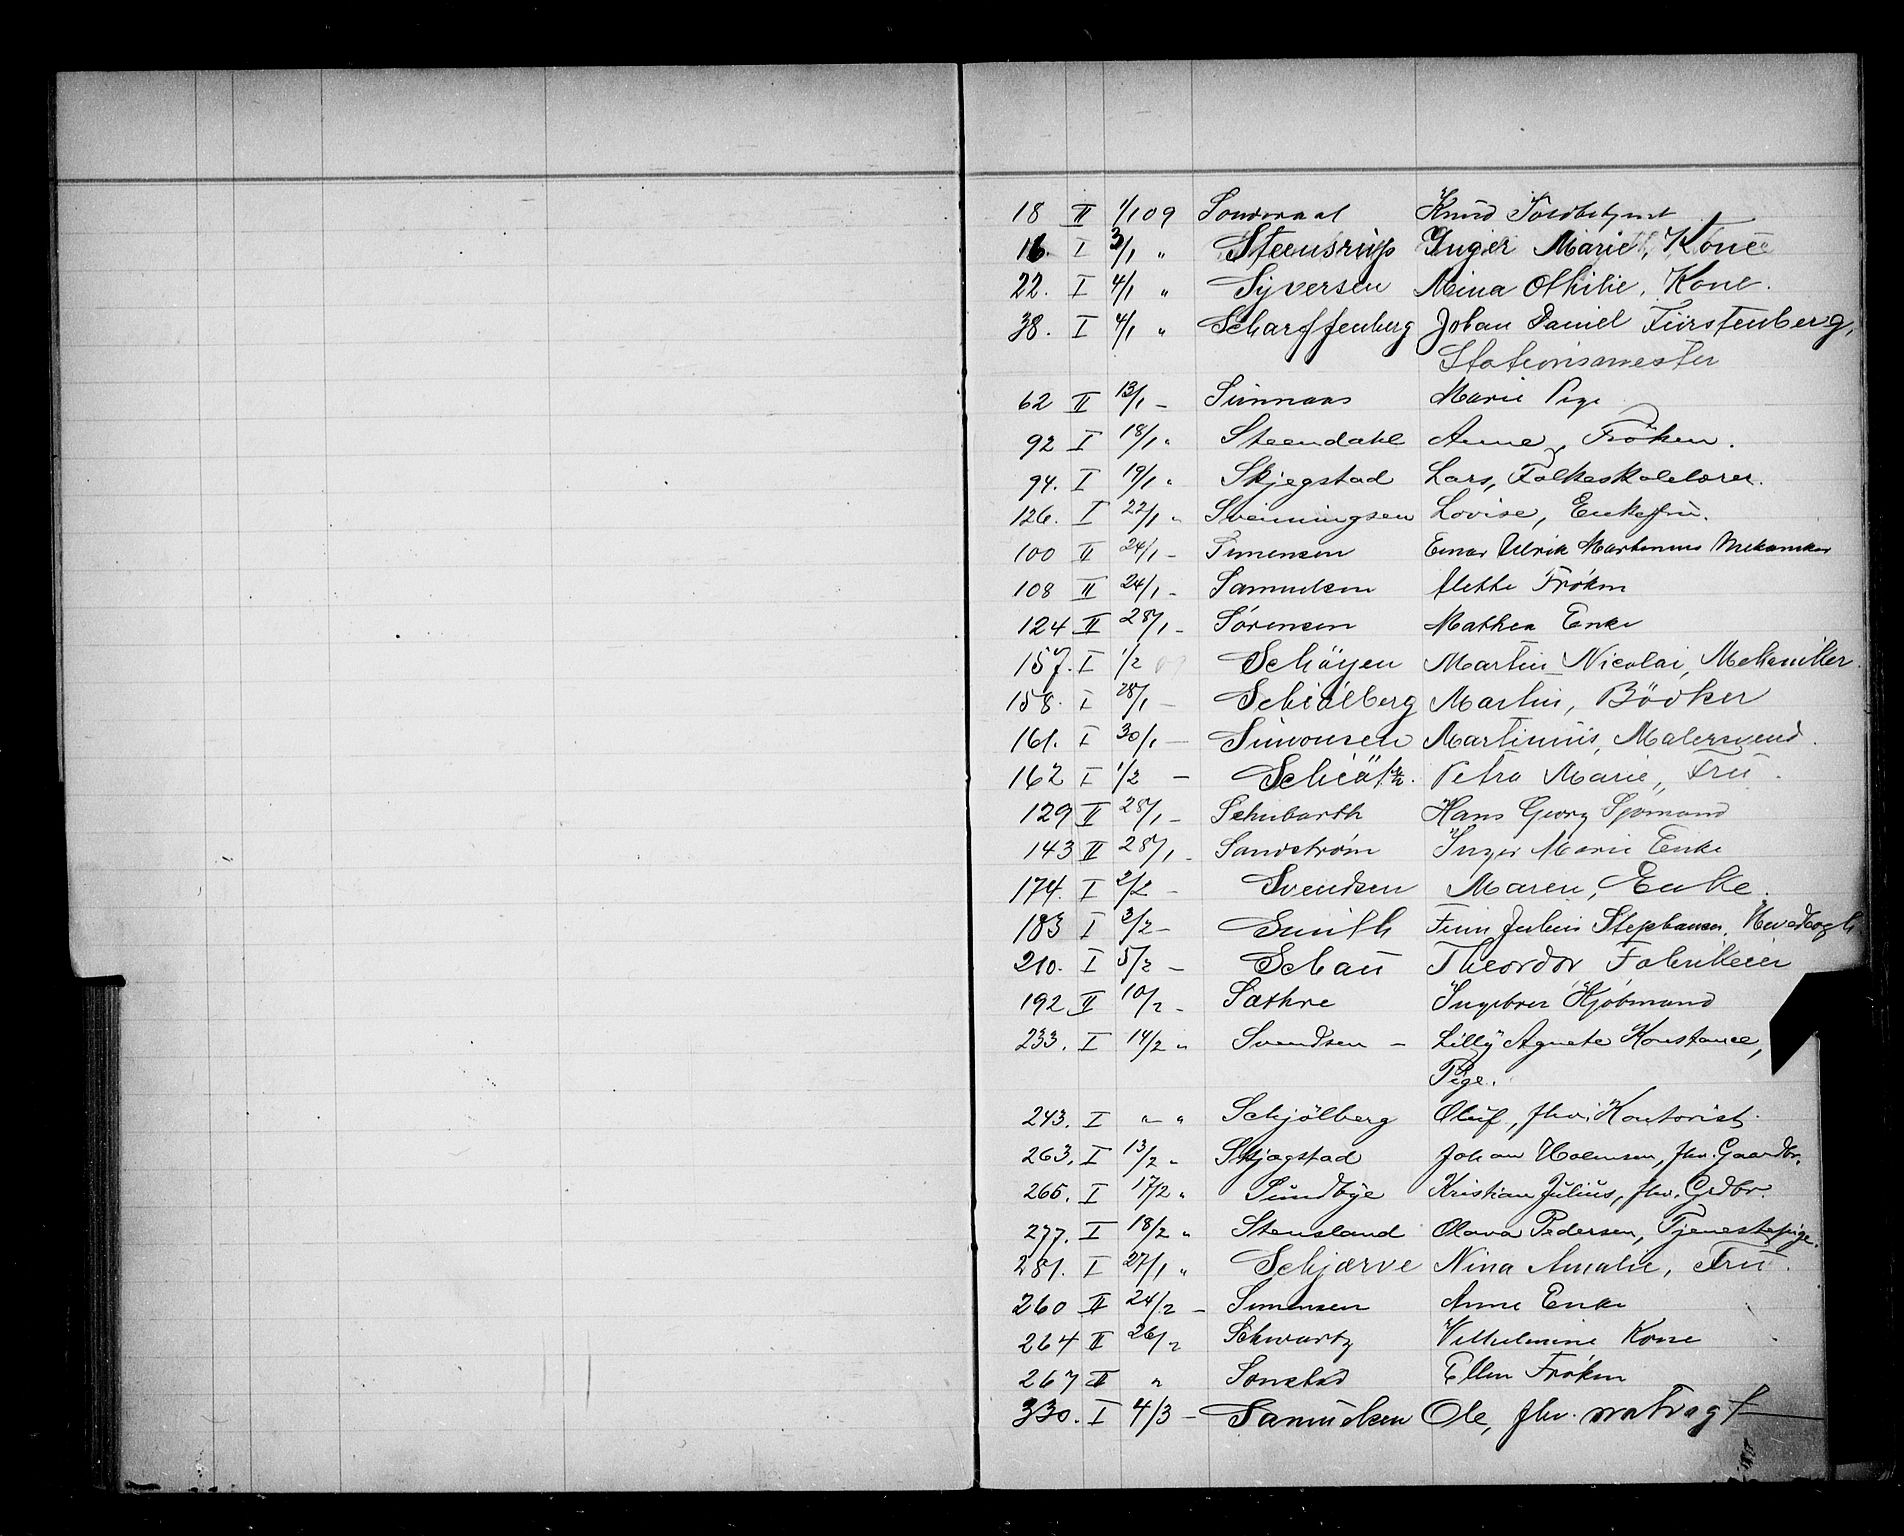 18 II 1/1 09 Sonderaal Knud
16. I 3/1 " Steenstrup Inger Marie, Kone
22. I 4/1 " Syversen Mina Othilie, Kone.
38. I 4/1 " Scharffenberg Johan Daniel Fürstenberg,
Stationsmester
62 II 13/1 - Sunnaas Marie Pige
92 I 18/1 " Steendahl Anne, Fröken.
94. I 19/1 " Skjegstad Lars, Folkeskolelærer.
126. I 22/1 " Svenningsen Lovise, Enkefru.
100 II 24/1 - Simensen Einar Ulrik Martinius Mekaniker
108 II 24/1 - Samuelsen Mette Frøken
124 II 28/1 - Sørensen Mathea Enke
157. I 1/2 09 Schöyen Martin Nicolai, Mekaniker.
158. I 28/1 - Schiölberg Martin, Bödker
161. I 30/1 - Simonsen Martinius, Malersvend.
162 I 1/2 - Schiötz. Petra Marie, Fru.
129 II 28/1 - Schubarth Hans Georg Sjømand
143 II 28/1 - Sandstrøm Inger Marie Enke
174. I 2/2 - Svendsen Maren, Enke.
183 I 3/2 - Smith Finn Julius Stephansen,
210. I 5/2 - Schau Theordor Fabrikeier
192 II 10/2 - Sæthre Ingebret Kjøbmand
233. I 14/2 " Svendsen - Lilly Agnete Konstance,
Pige.
243. I " " Schjölberg Oluf, fhv. Kontorist.
263. I 13/2 " Skjægstad Johan Holmsen, fhv. Gaardbr.
265. I 17/2 " Sundbye Kristian Julius, fhv. Grdbr.
277. I 18/2 " Stensland Olava Pedersen, Tjenestepige.
281. I 27/1 " Schjærve Nina Amalie, Fru.
260 II 24/2 - Simensen Anne Enke
264 II 26/2 Schwartz Vilhelmine Kone
267 II " Sonstad Ellen Frøken
330. I 4/3 - Samuelsen Ole, fhv.